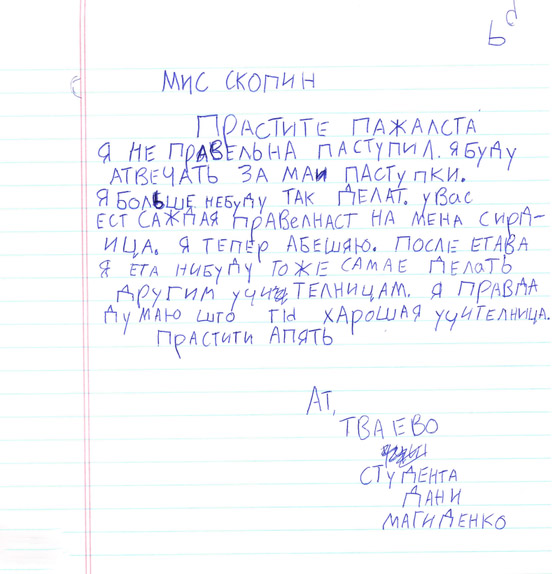 6д
МИС СКОПИН
ПРАСТИТЕ ПАЖАЛСТА
Я НЕ ПРАВЕЛЬНА ПАСТУПИЛ. Я БУДУ
АТВЕЧАТЬ ЗА МАИ ПАСТУПКИ.
Я БОЛЬШЕ НЕБУДУ ТАК ДЕЛАТ. У ВАС
ЕСТ САЖДАЯ ПРАВЕЛНАСТ НА МЕНА СИРД-
ИЦА. Я ТЕПЕР АБЕШЯЮ. ПОСЛЕ ЕТАВА
Я ЕТА НИБУДУ ТОЖЕ САМАЕ ДЕЛАТЬ
ДРУГИМ УЧИТЕЛНИЦАМ. Я ПРАВДА
ДУМАЮ ШТО ТЫ ХАРОШАЯ УЧИТЕЛНИЦА.
ПРАСТИТИ АПЯТЬ
АТ,
ТВАЕВО
СТУДЕНТА
ДАНИ
МАГИДЕНКО